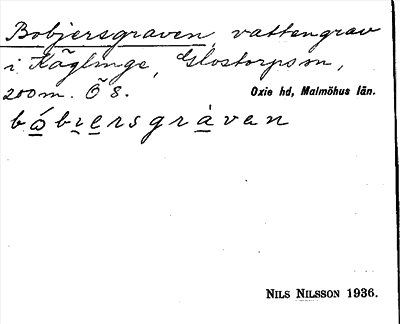 Bobjersgraven, vattengrav
i Käglinge, Glostorpsn,
200 m. Ö 8.
Oxie hd, Malmöhus län.
bóbıersgràvan
NILS NILSSON 1936.